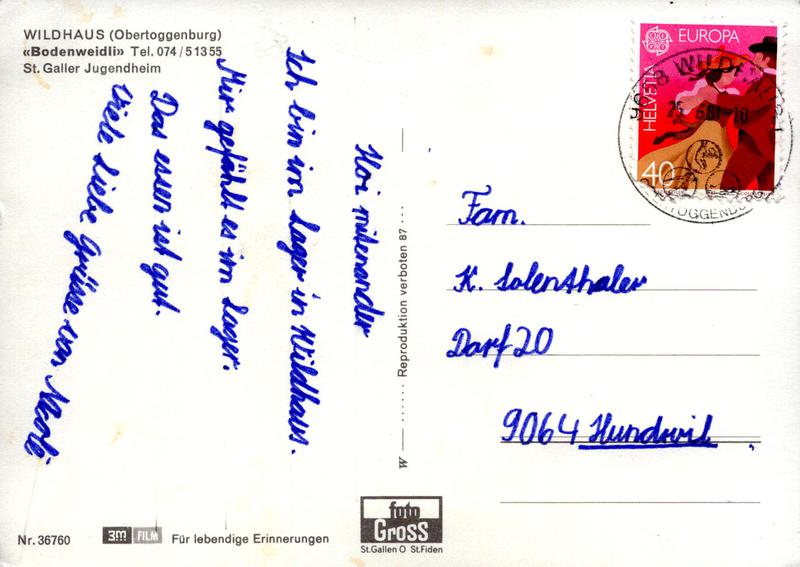 WILDHAUS (Obertoggenburg)
«Bodenweidli» Tel. 074/51355
St. Galler Jugendheim
Hoi mitenander
Ich bin im Lager in Wildhaus.
Mir gefählt es im Lager.
Das essen ist gut.
Viele Liebe Grüsse von
W ...... Reproduktion verboten 87 ...
EUROPA
HELVETIA
40
25.6.81-10
Fam.
K. Solenthaler
Dorf 20
9064 Hundwil
Nr. 36760
3M FILM
Für lebendige Erinnerungen
foto
Gross
St.Gallen O St.Fiden